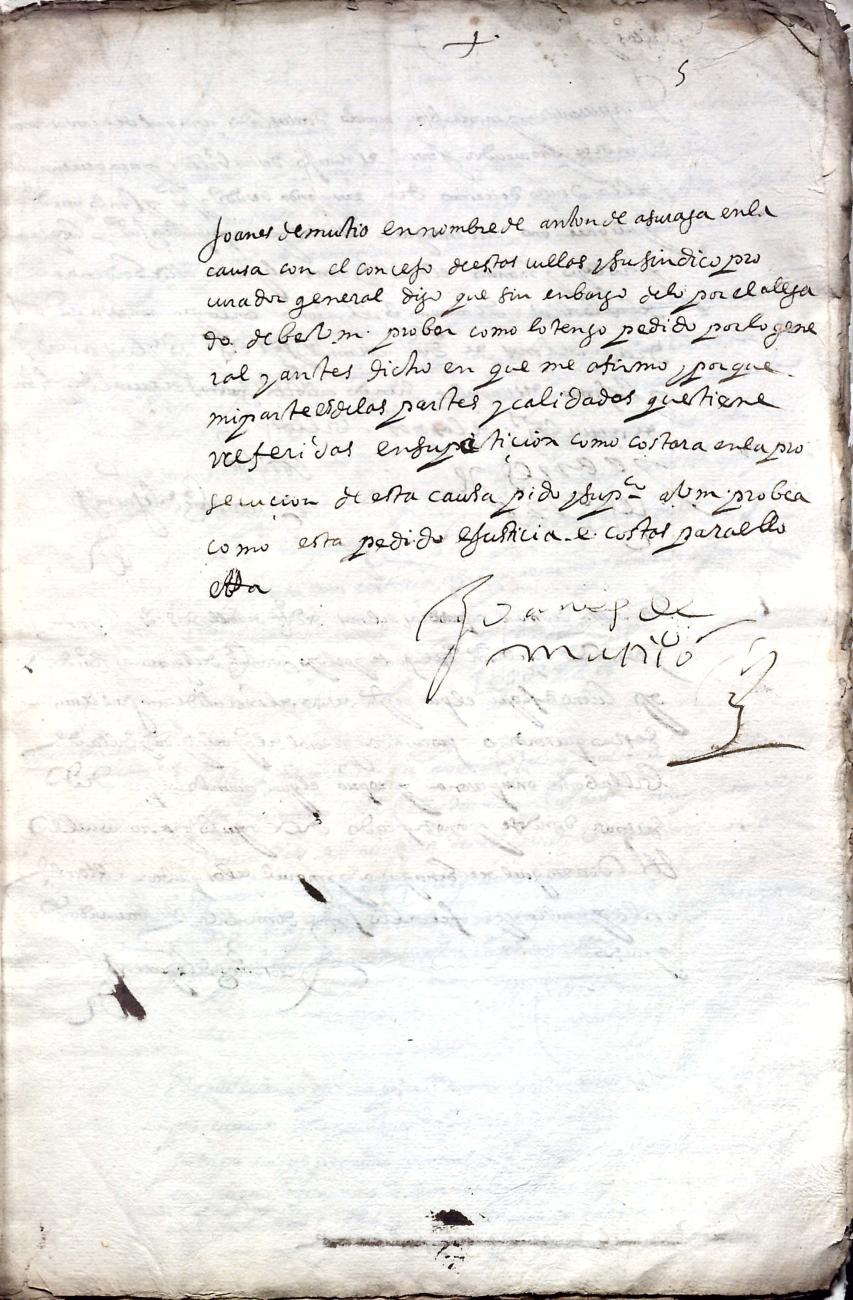 5
Joanes de mutio en nombre de anton de asuraga en la
causa con el concejo de estas villas y su sindico pro
curador general digo que sin enbargo de lo por el alega
do debe v.m. prober como lo tengo pedido por lo gene
ral y antes dicho en que me afirmo y porque
mi parte es de las partes y calidades que tiene
referidas en su petiçion como costara en la pro
secucion de esta causa pido y supco a v.m. probea
como esta pedido e justicia e costas para ello
etta
Joanes de
mutio